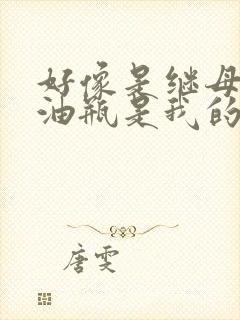 好像是继母
油瓶是我的
唐雯